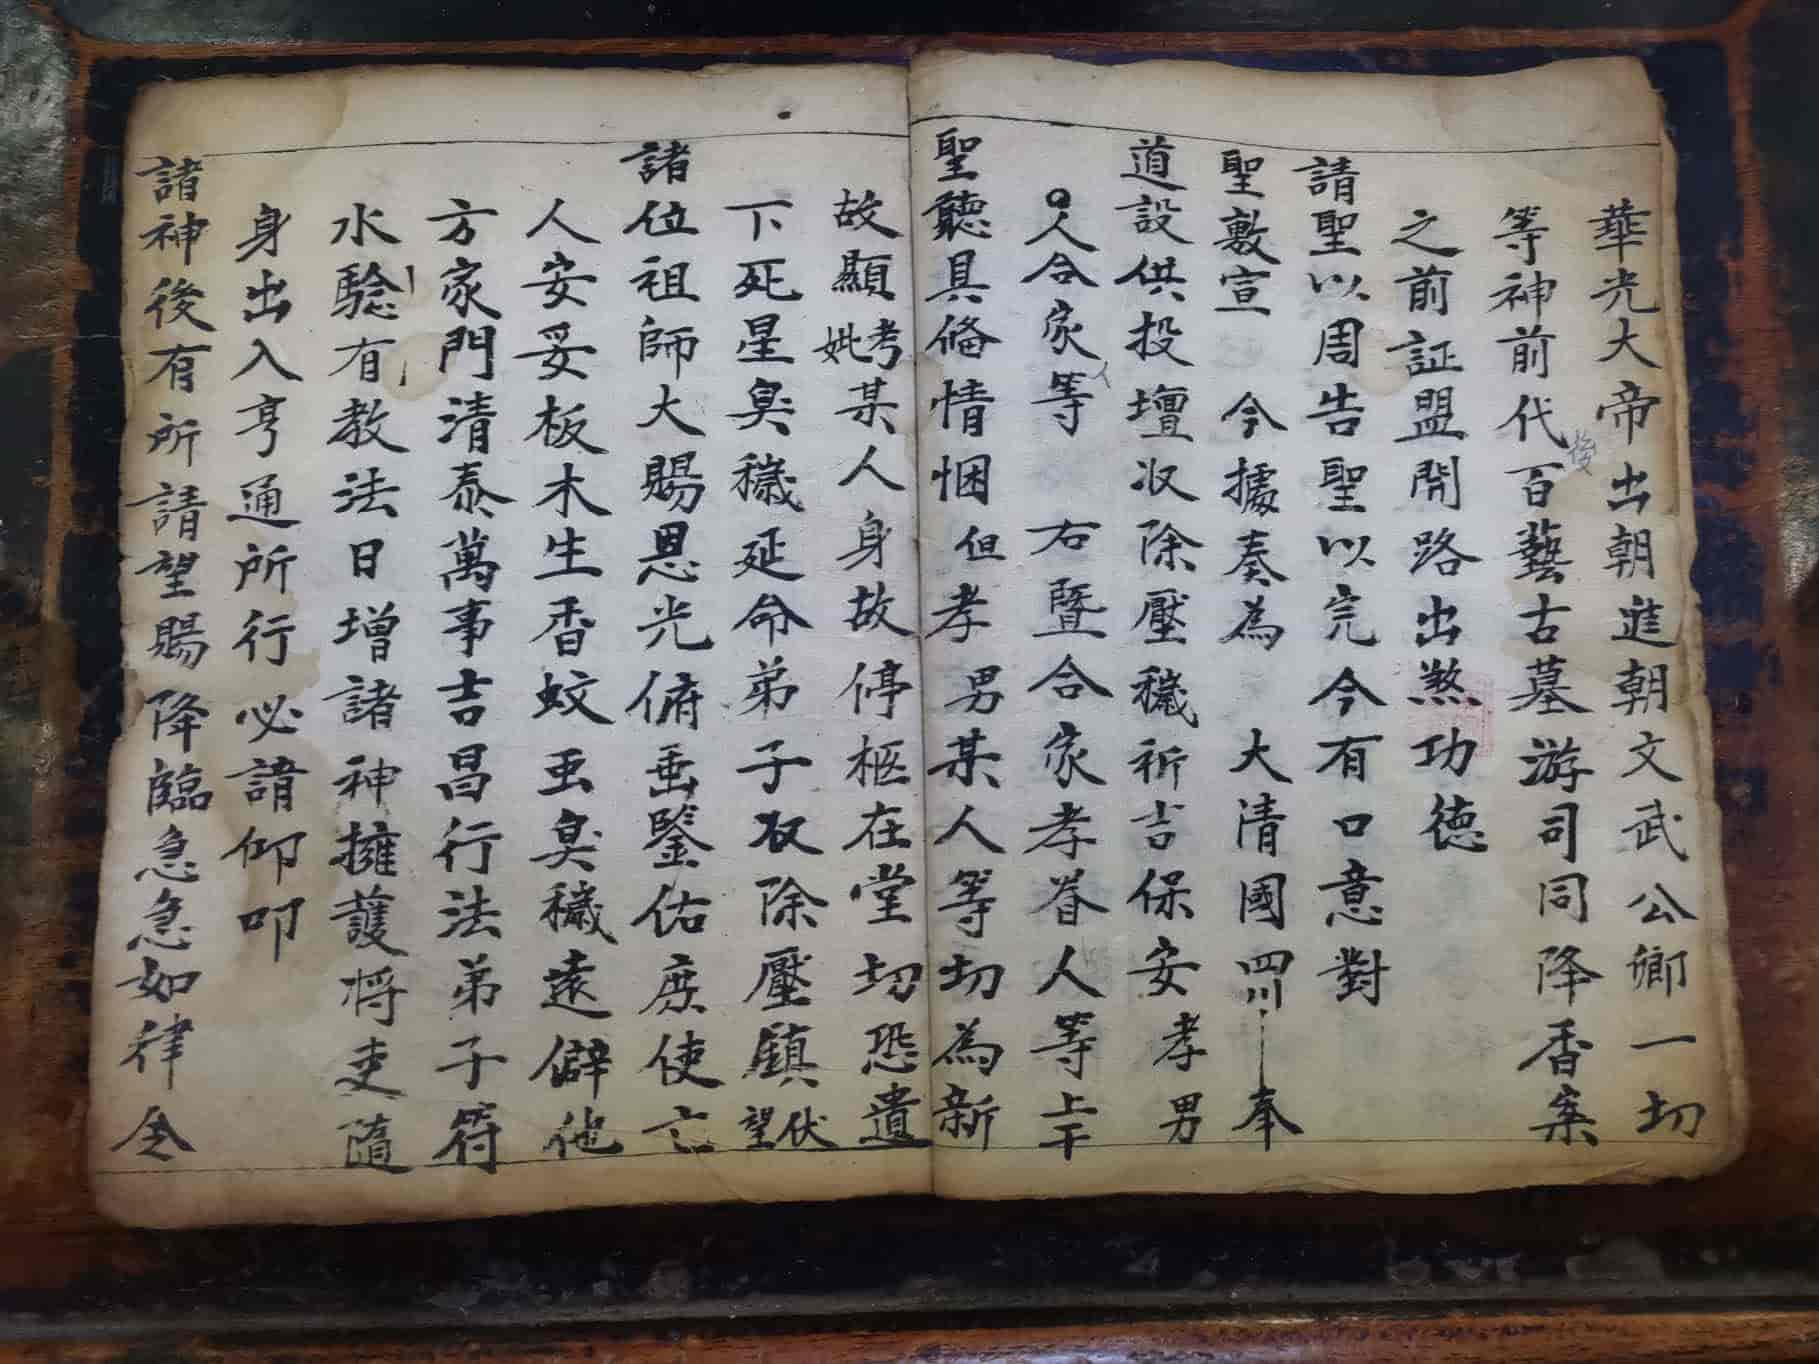 華光大帝出朝進朝文武公卿一切
等神前代後百藝古墓游司同降香案
之前証盟開路出煞功德
請聖以周告聖以完今有口意對
聖敷宣 今據奏為 大清國四川 奉
道設供投壇收除壓穢祈吉保安孝男
人合家等 右暨合家孝眷人等上干
聖聽具偹情悃但孝男某人等切為新
故顯考妣某人身故停柩在堂切恐遺
下死星臭穢延命弟子收除壓鎮伏望
諸位祖師大賜恩光俯垂鑒佑庶使亡
人安妥板木生香蚊虫臭穢遠僻他
方家門清泰萬事吉昌行法弟子符
水騐有教法日增諸神擁護将吏隨
身出入亨通所行必請仰叩
諸神後有所請望賜降臨急急如律令